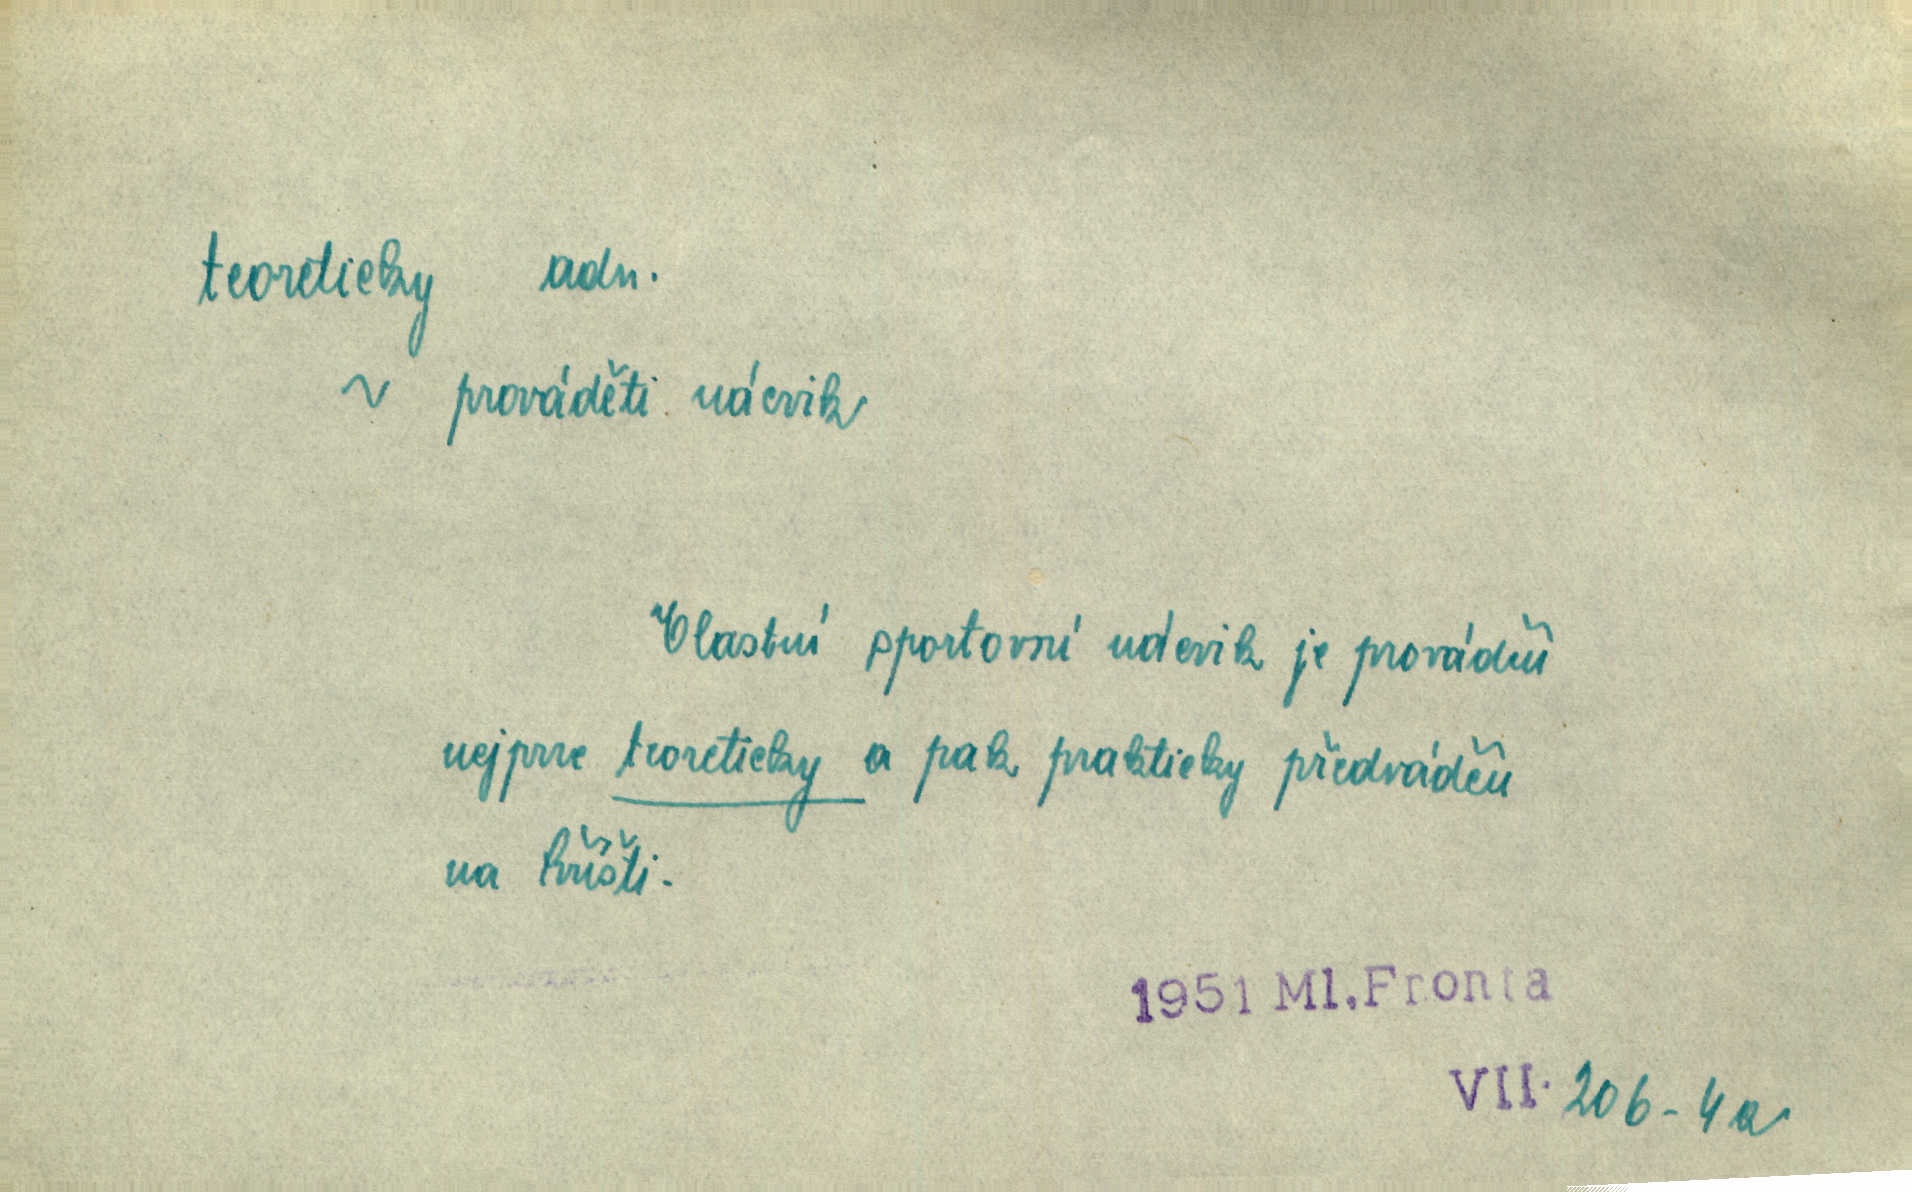 teoreticky adv.
~ prováděti nácvik
Vlastní sportovní nácvik je prováděn
nejprve teoreticky a pak prakticky předváděn
na hřišti.
1951 Ml.Fronta
VII. 206-4a